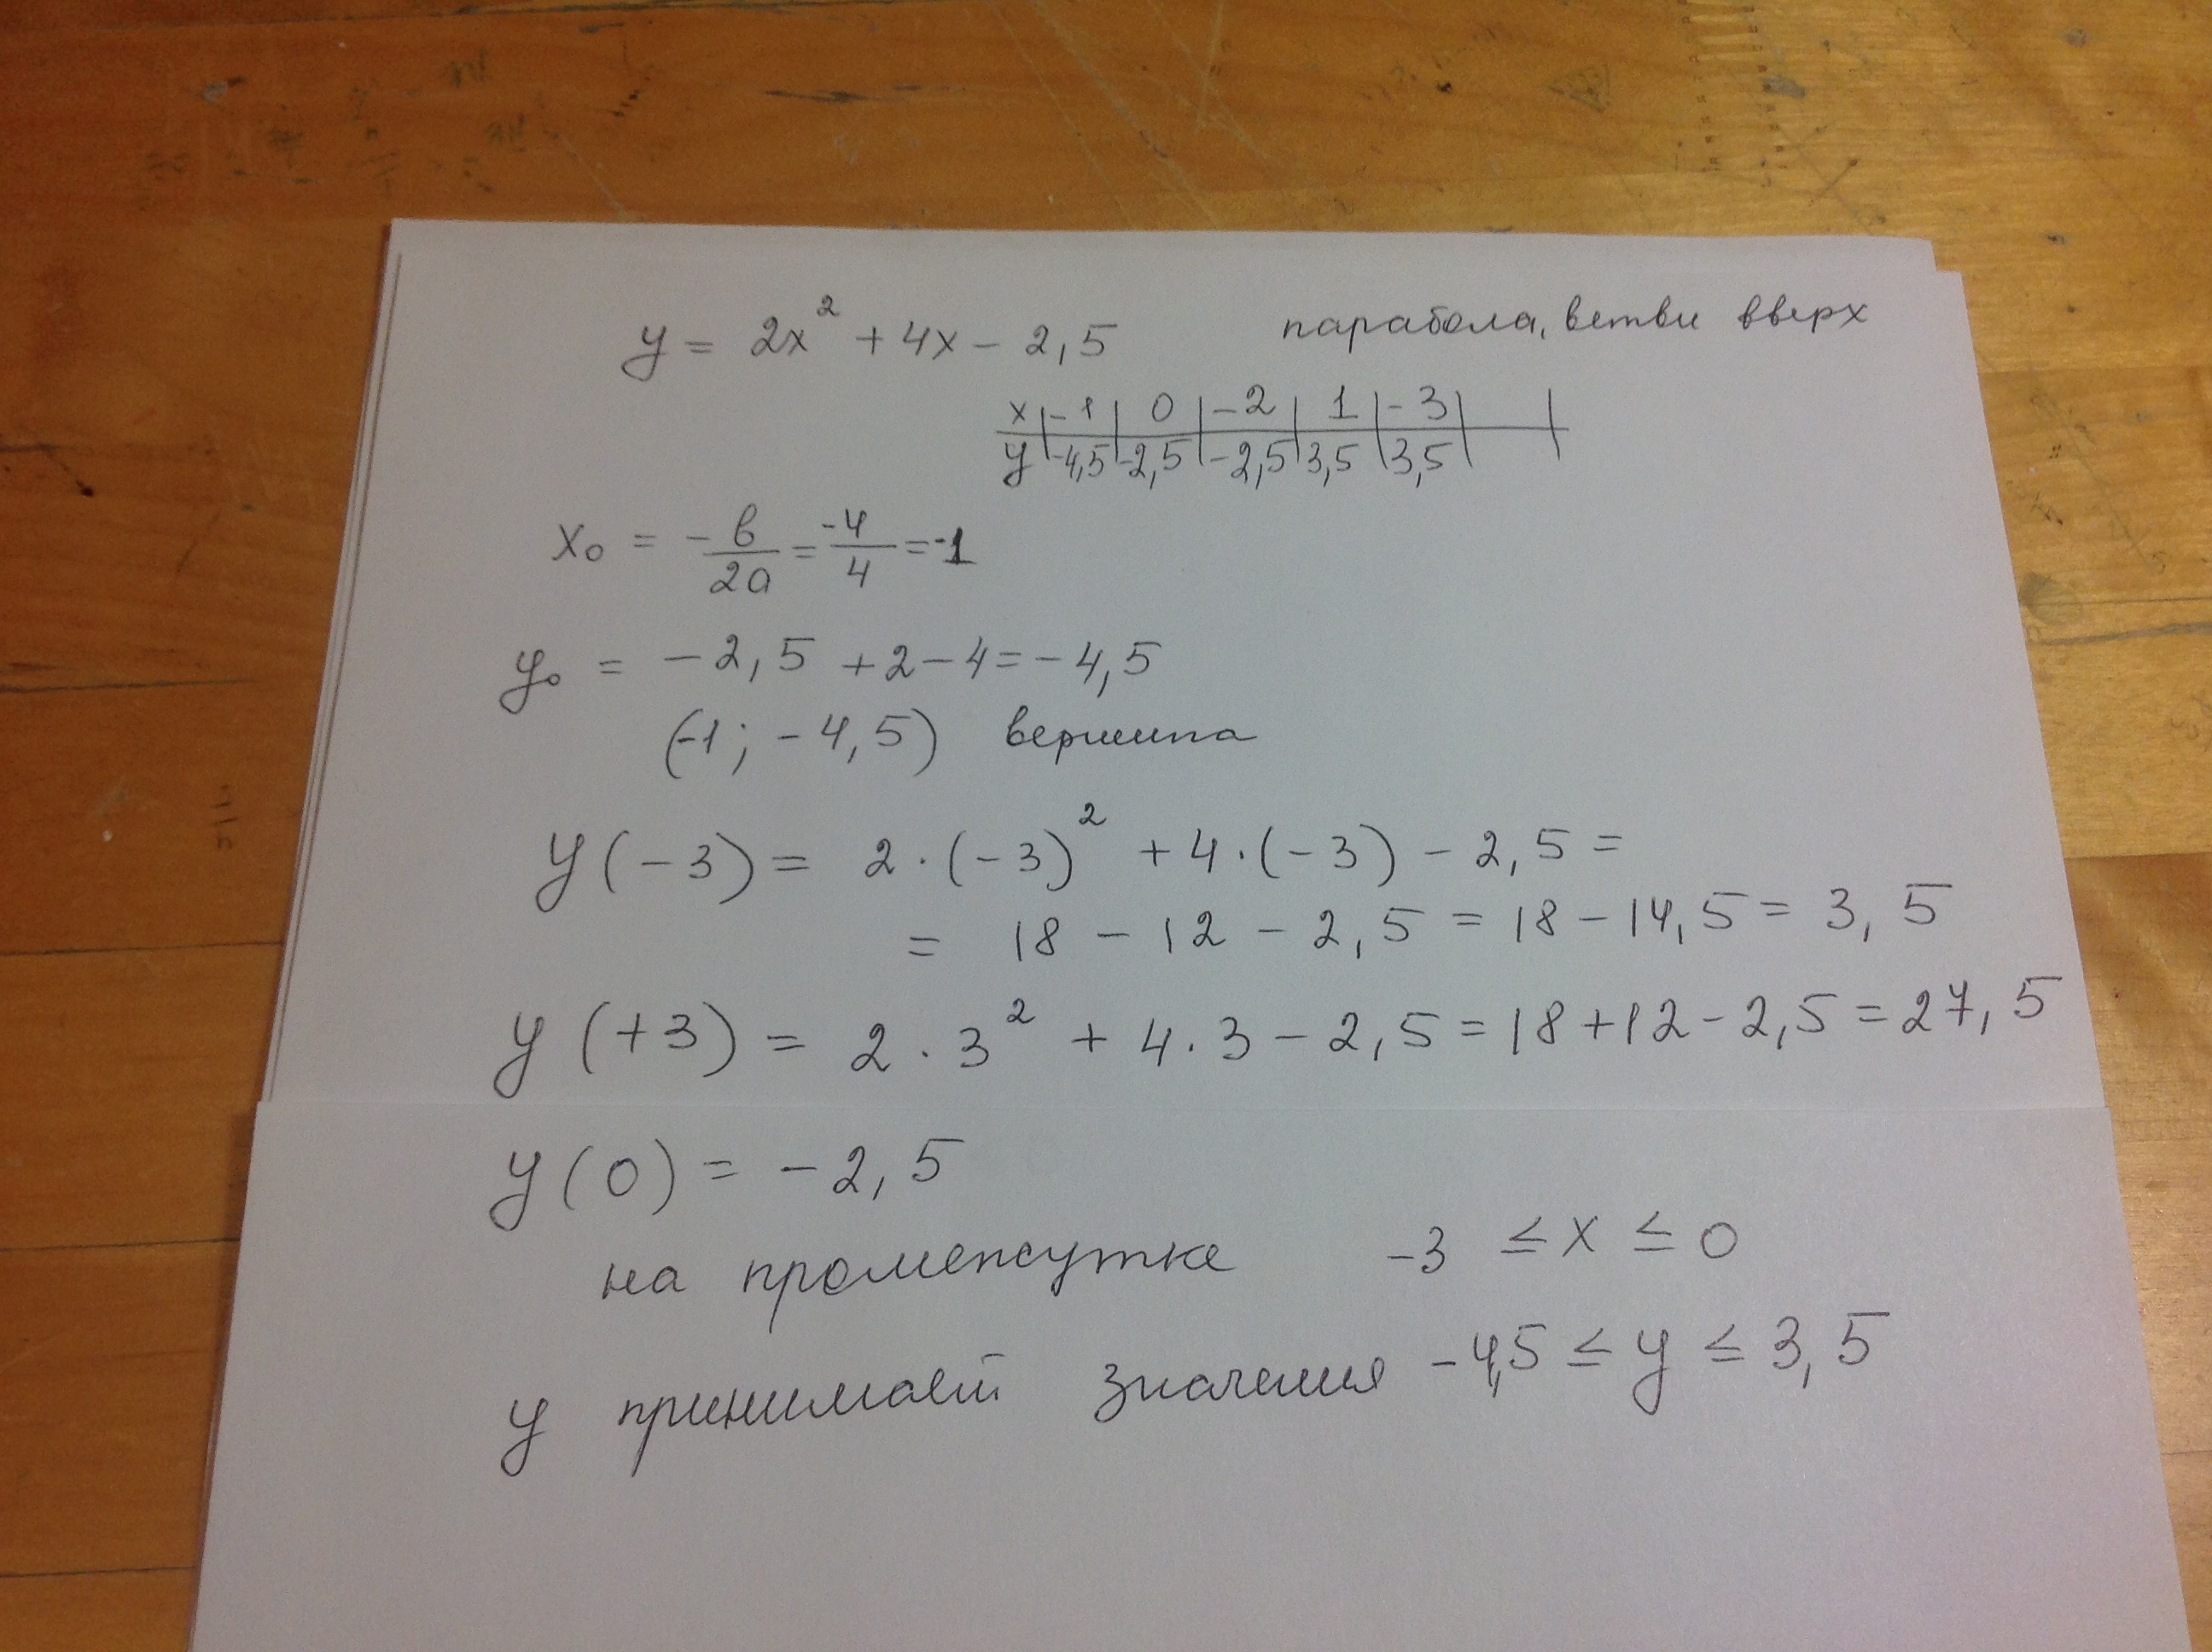 y = 2x² + 4x - 2,5 парабола, ветви вверх
x | -1 | 0 | -2 | 1 | -3 |
y | -4,5 | -2,5 | -2,5 | 3,5 | 3,5 |
x₀ = - в/2a = -4/4 = -1
y₀ = -2,5 + 2 - 4 = -4,5
(-1; -4,5) вершина
y(-3) = 2·(-3)² + 4·(-3) - 2,5 =
= 18 - 12 - 2,5 = 18 - 14,5 = 3,5
y(+3) = 2·3² + 4·3 - 2,5 = 18 + 12 - 2,5 = 27,5
y(0) = -2,5
на промежутке -3 ≤ x ≤ 0
y принимает значения -4,5 ≤ y ≤ 3,5